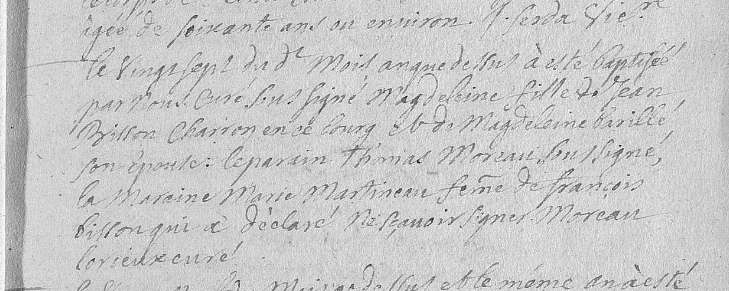 âgée de soixante ans ou environ. J. serda Vic.re
le vingt sept du dt Mois an que dessus à esté baptisée
par Nous Curé soussigné Magdeleine fille de Jean
Brisson Charron en ce bourg & de Magdeleine barillé
son épouse: le parain Thimas Moreau soussigné,
la Maraine Marie Martineau feme de françois
bisson qui a déclaré Ne sçavoir signer Moreau
Lorieux curé
Mois an dessus et le même an à esté